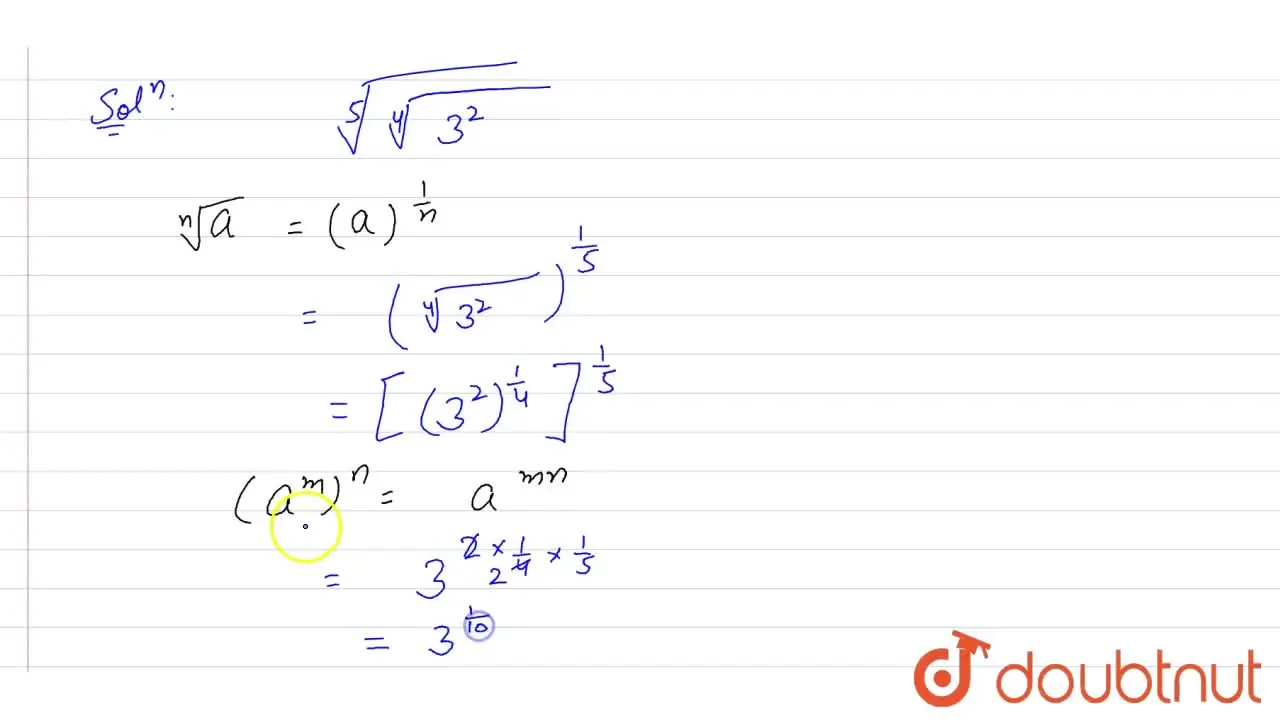 Solⁿ: ⁵√(⁴√(3²))
ⁿ√a = (a)^(1/n)
= (⁴√(3²))^(1/5)
= [(3²)^(1/4)]^(1/5)
(a^m)^n = a^(mn)
= 3^(2 × 1/4 × 1/5)
2
= 3^(1/10)
doubtnut